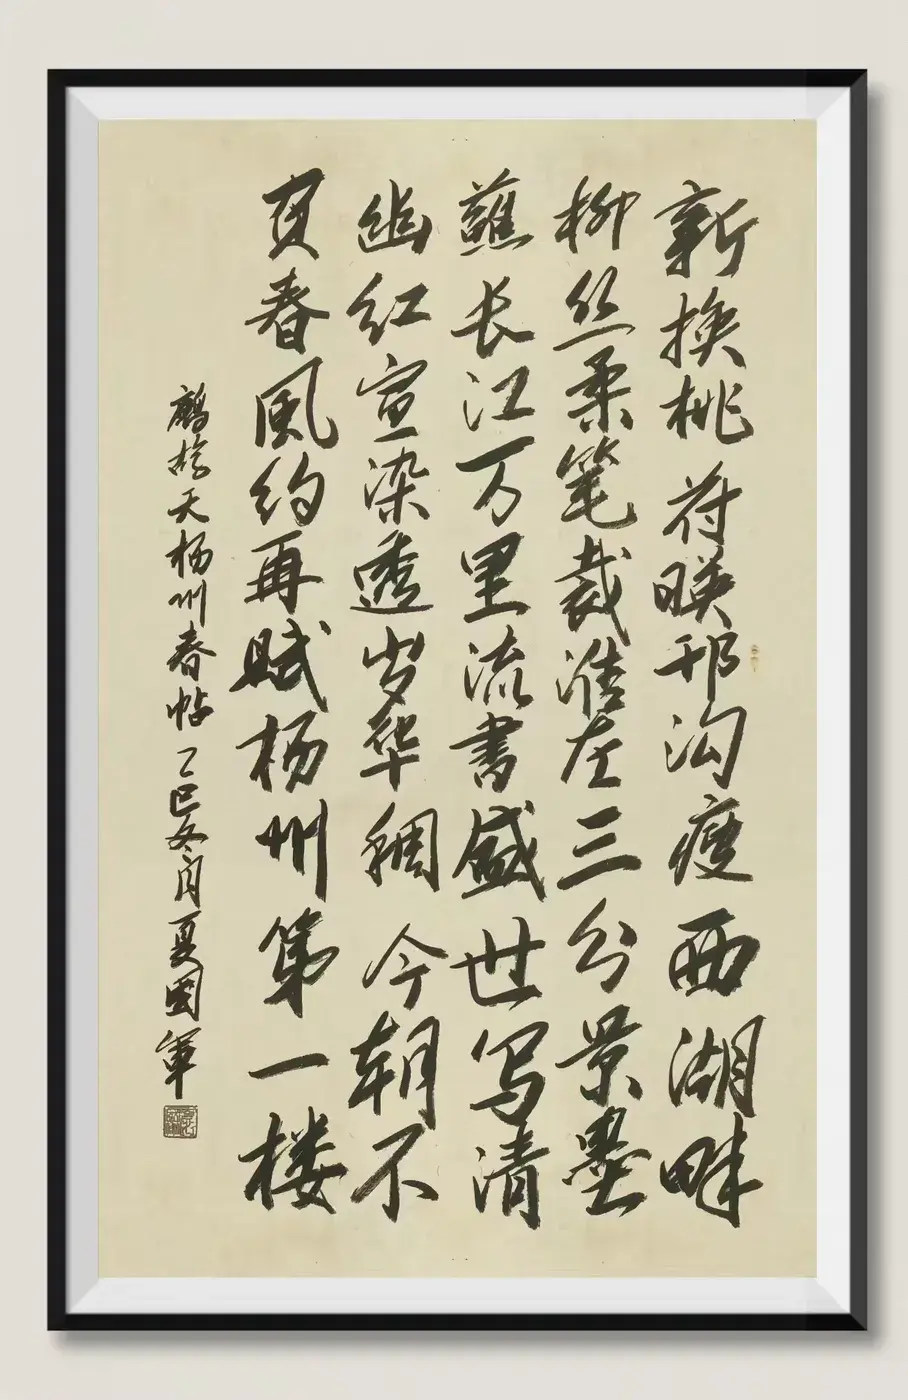 新换桃符暎邗沟瘦西湖畔
柳丝柔笔裁淮左三分景墨
蘸长江万里流書盛世写清
幽红宣染透岁华稠今朝不
负春風约再赋杨州第一楼
鹧鸪天杨州春帖乙巳冬月夏國軍